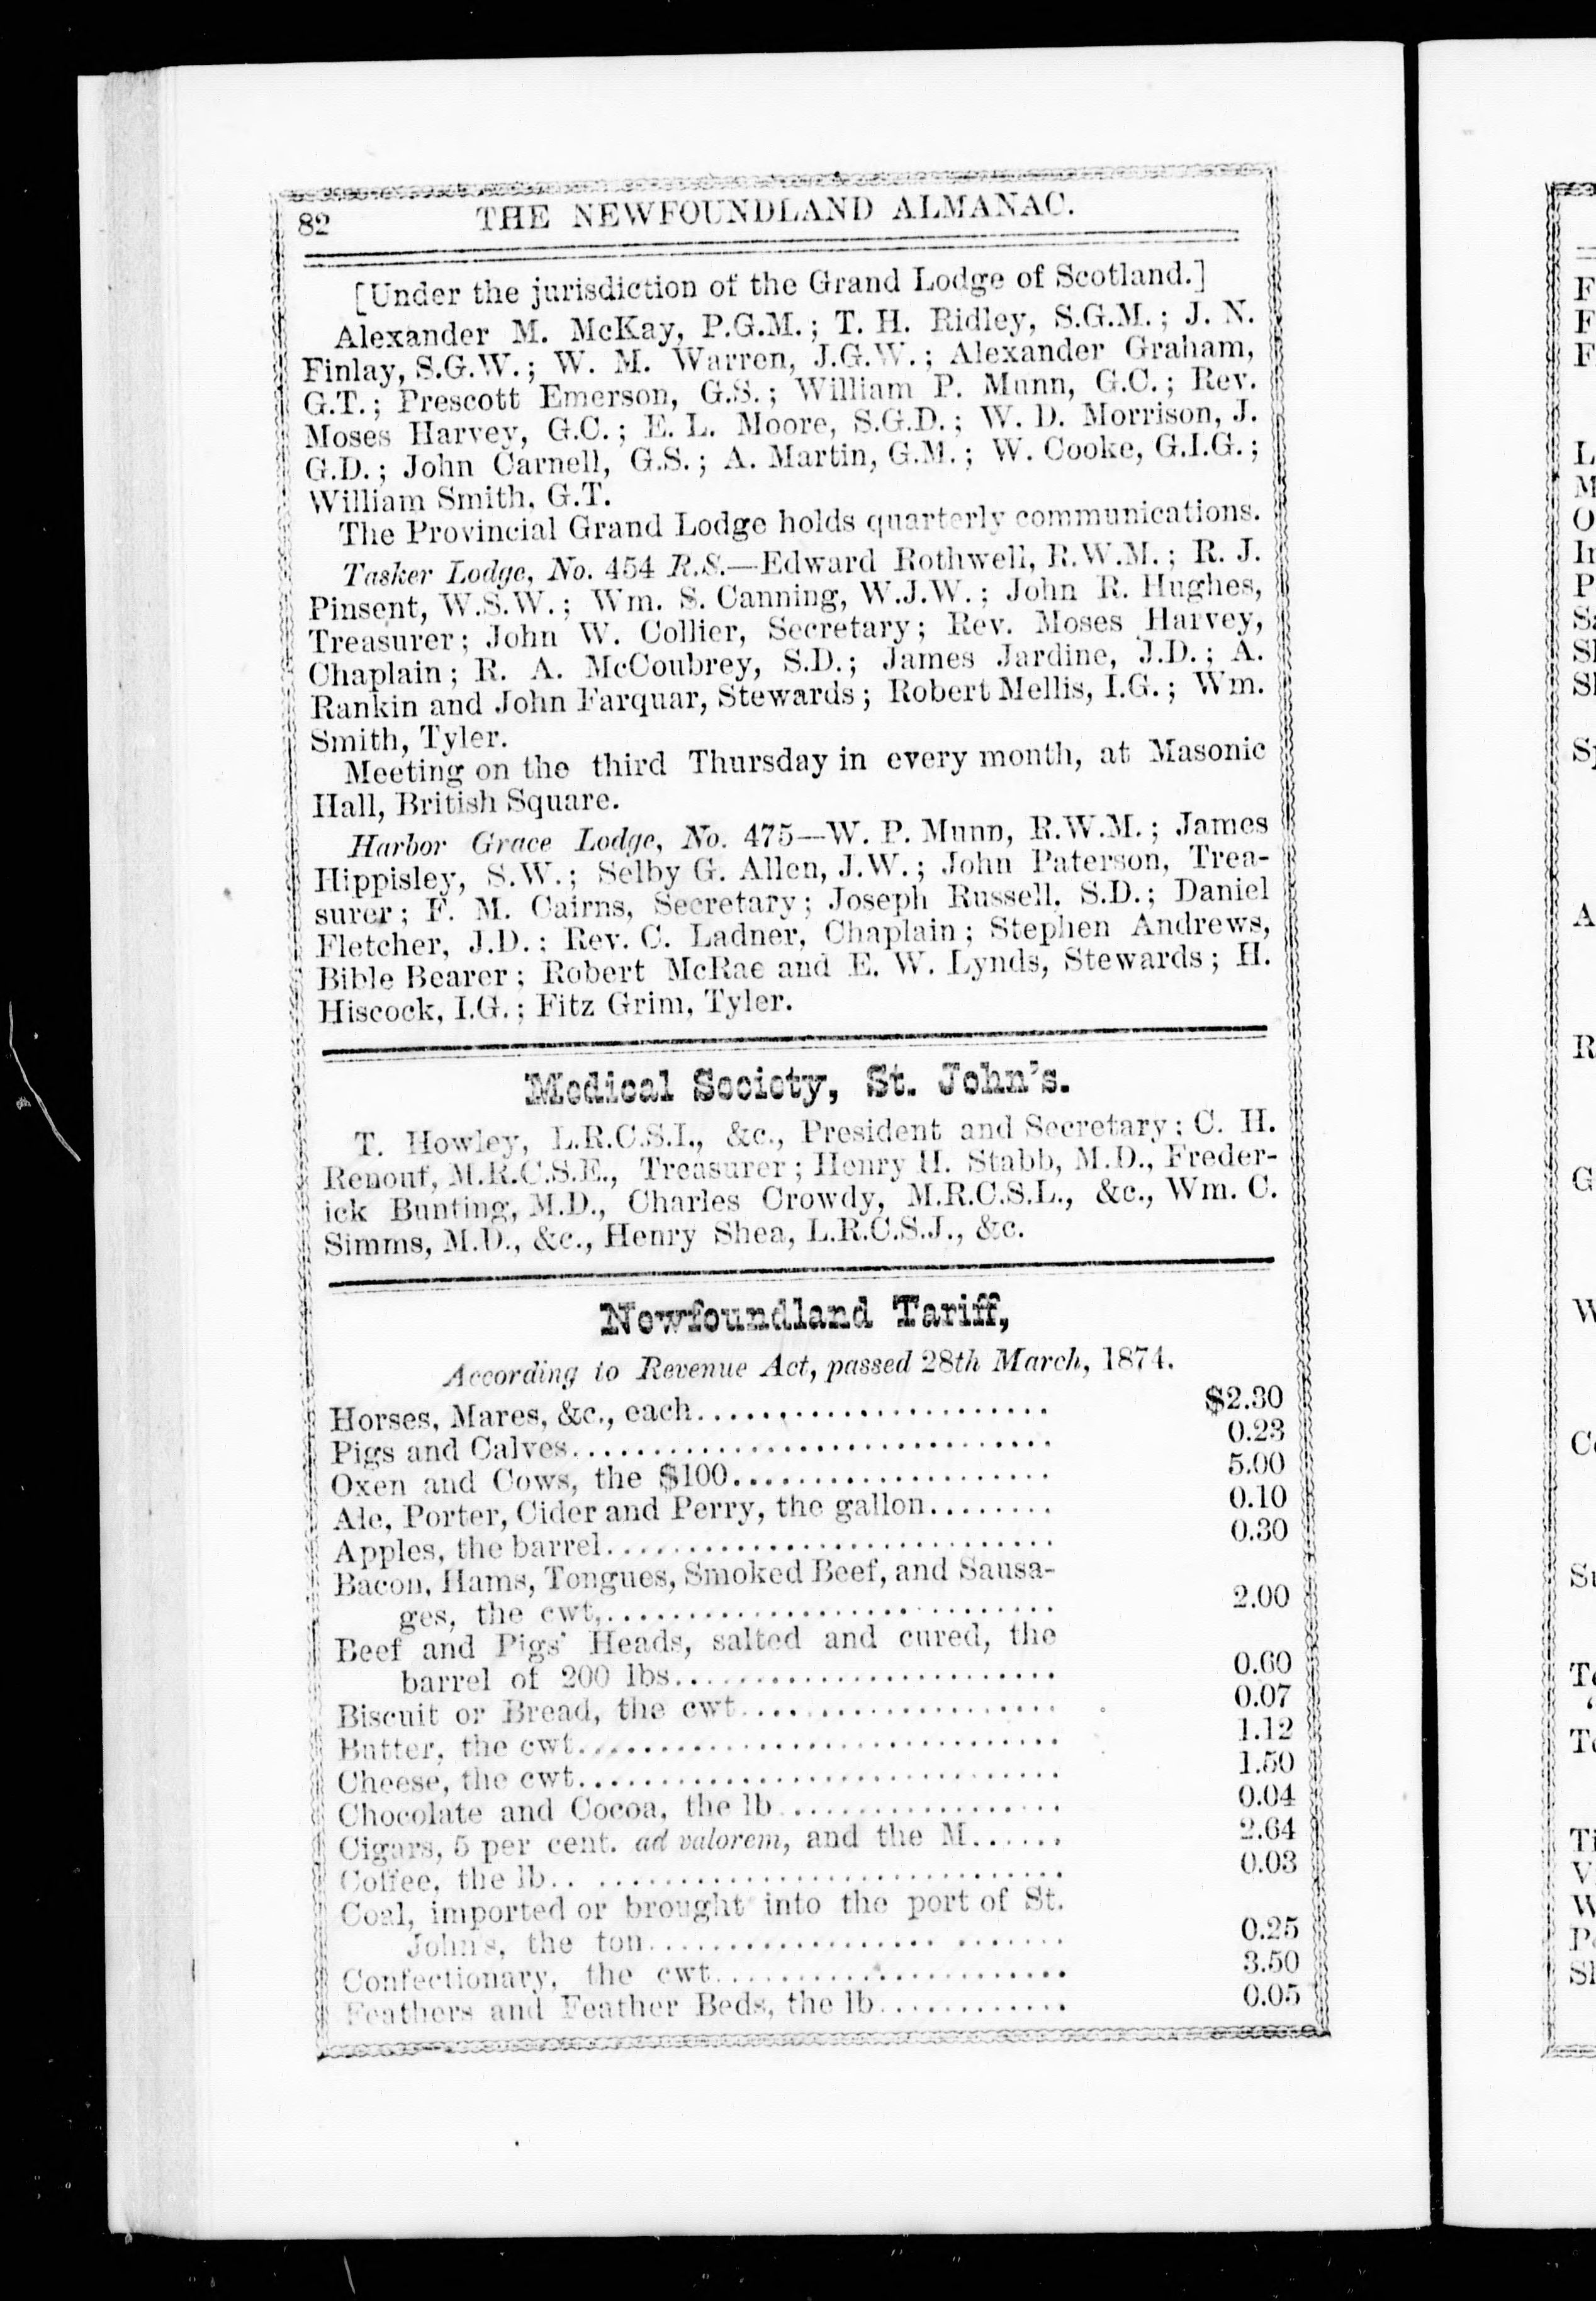 82 THE NEWFOUNDLAND ALMANAC.
[Under the jurisdiction of the Grand Lodge of Scotland.]
Alexander M. McKay, P.G.M.; T. H. Ridley, S.G.M.; J. N.
Finlay, S.G.W.; W. M. Warren, J.G.W.; Alexander Graham,
G.T.; Prescott Emerson, G.S.; William P. Munn, G.C.; Rev.
Moses Harvey, G.C.; E. L. Moore, S.G.D.; W. D. Morrison, J.
G.D.; John Carnell, G.S.; A. Martin, G.M.; W. Cooke, G.I.G.;
William Smith, G.T.
The Provincial Grand Lodge holds quarterly communications.
Tasker Lodge, No. 454 R.S.—Edward Rothwell, R.W.M.; R. J.
Pinsent, W.S.W.; Wm. S. Canning, W.J.W.; John R. Hughes,
Treasurer; John W. Collier, Secretary; Rev. Moses Harvey,
Chaplain; R. A. McCoubrey, S.D.; James Jardine, J.D.; A.
Rankin and John Farquar, Stewards; Robert Mellis, I.G.; Wm.
Smith, Tyler.
Meeting on the third Thursday in every month, at Masonic
Hall, British Square.
Harbor Grace Lodge, No. 475—W. P. Munn, R.W.M.; James
Hippisley, S.W.; Selby G. Allen, J.W.; John Paterson, Trea-
surer; F. M. Cairns, Secretary; Joseph Russell, S.D.; Daniel
Fletcher, J.D.; Rev. C. Ladner, Chaplain; Stephen Andrews,
Bible Bearer; Robert McRae and E. W. Lynds, Stewards; H.
Hiscock, I.G.; Fitz Grim, Tyler.
Medical Society, St. John's.
T. Howley, L.R.C.S.I., &c., President and Secretary; C. H.
Renouf, M.R.C.S.E., Treasurer; Henry H. Stabb, M.D., Freder-
ick Bunting, M.D., Charles Crowdy, M.R.C.S.L., &c., Wm. C.
Simms, M.D., &c., Henry Shea, L.R.C.S.J., &c.
Newfoundland Tariff,
According to Revenue Act, passed 28th March, 1874.
Horses, Mares, &c., each........................ $2.30
Pigs and Calves................................ 0.23
Oxen and Cows, the $100.................... 5.00
Ale, Porter, Cider and Perry, the gallon........ 0.10
Apples, the barrel............................. 0.30
Bacon, Hams, Tongues, Smoked Beef, and Sausa-
ges, the cwt,............................. 2.00
Beef and Pigs' Heads, salted and cured, the
barrel of 200 lbs........................ 0.60
Biscuit or Bread, the cwt..................... 0.07
Butter, the cwt............................... 1.12
Cheese, the cwt............................... 1.50
Chocolate and Cocoa, the lb.................. 0.04
Cigars, 5 per cent. ad valorem, and the M...... 2.64
Coffee, the lb................................ 0.03
Coal, imported or brought into the port of St.
John's, the ton.......................... 0.25
Confectionary, the cwt...................... 3.50
Feathers and Feather Beds, the lb............. 0.05